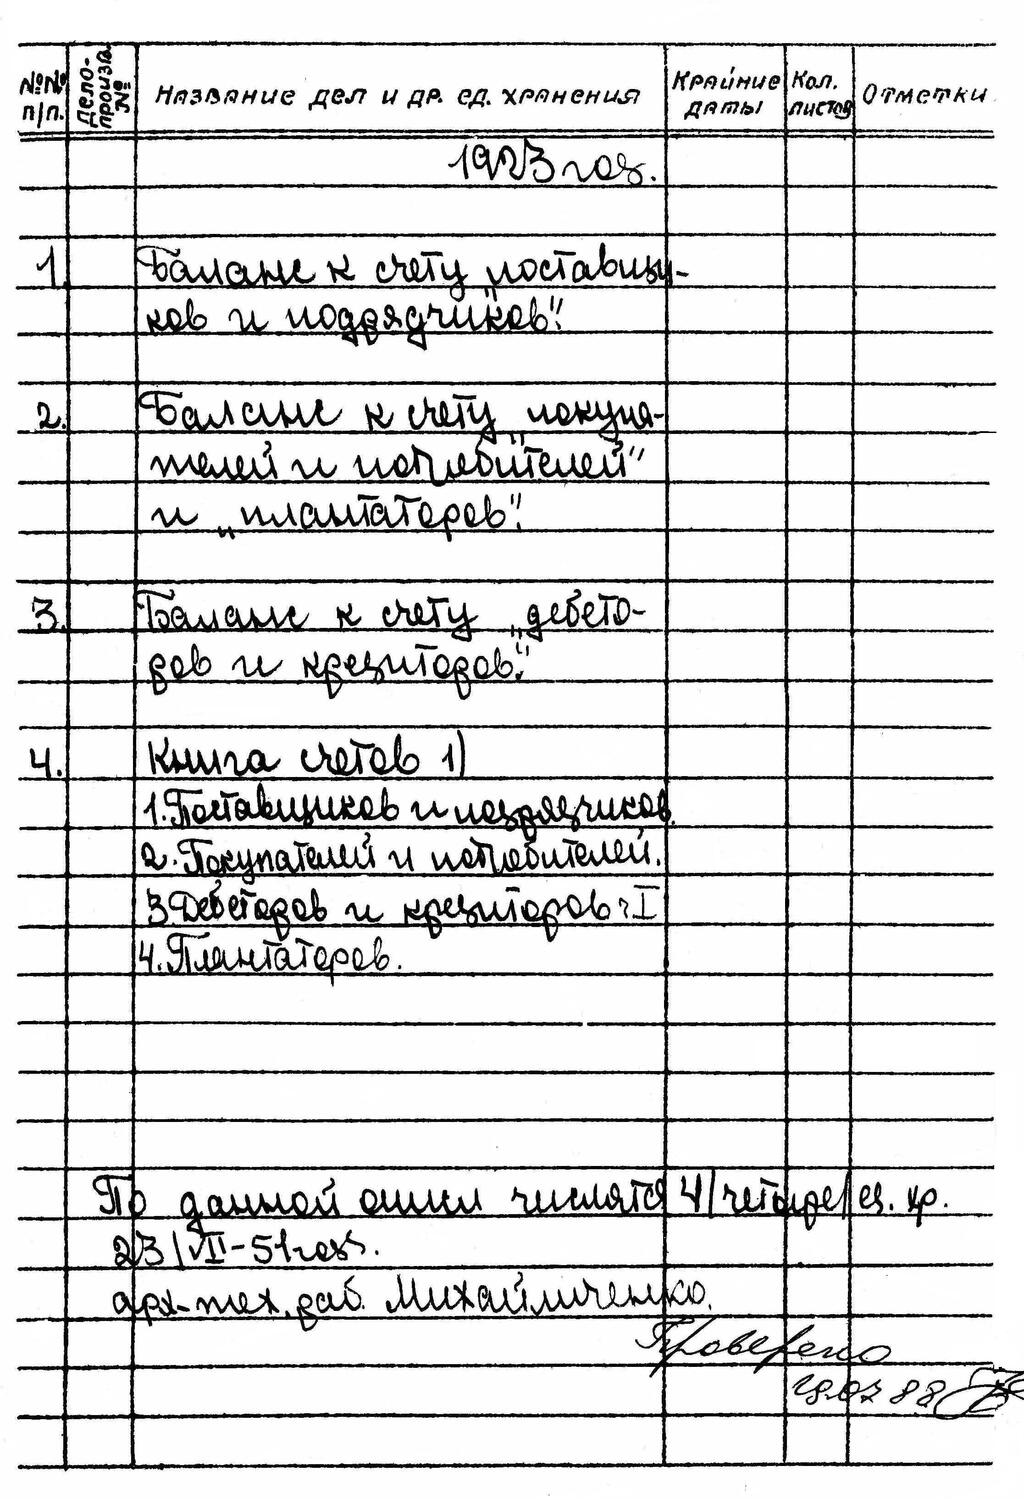 №№ п/п.
Дело-произв. №
Название дел и др. ед. хранения
Крайние даты
Кол. листов
Отметки
1923 год.
1. Баланс к счету „поставщи-
ков и подрядчиков".
2. Баланс к счету „покупа-
телей и потребителей"
и „плантаторов".
3. Баланс к счету „дебето-
ров и кредиторов".
4. Книга счетов 1)
1. Поставщиков и подрядчиков.
2. Покупателей и потребителей.
3. Дебеторов и кредиторов
4. Плантаторов.
По данной описи числятся 4/четыре/ед. хр.
23/VII-51 год.
арх-тех. раб. Михайличенко.
Проверено
07 88